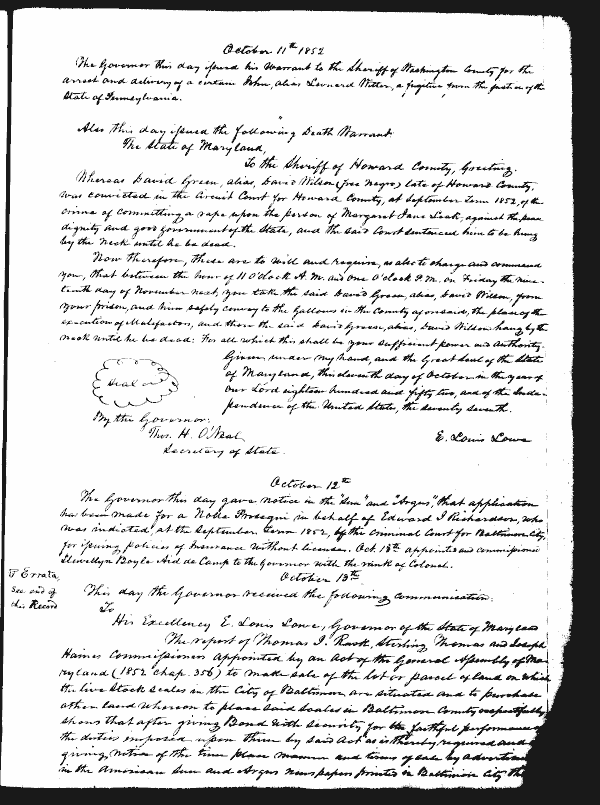 October 11th 1852
The Governor this day issued his Warrant to the Sheriff of Washington County for the
arrest and delivery of a certain John, alias Leonard Witter, a fugitive from the justice of the
State of Pennsylvania.
Also this day issued the following Death Warrant.
The State of Maryland,
To the Sheriff of Howard County, Greeting.
Whereas David Green, alias, David Wilson (free Negro) late of Howard County,
was convicted in the Circuit Court for Howard County, at September Term 1852, of the
crime of committing a rape upon the person of Margaret Jane Leek, against the peace
dignity and good government of the State, and the said Court sentenced him to be hung
by the neck until he be dead.
Now therefore, these are to will and require, as also to charge and command
you, that between the hour of 11 O'clock A.M. and one O'clock P.M. on Friday the nine-
teenth day of November next, you take the said David Green, alias, David Wilson, from
your prison, and him safely convey to the Gallows in the County aforesaid, the place of the
execution of Malefactors, and there the said David Green, alias, David Wilson hang by the
neck until he be dead: For all which this shall be your sufficient power and authority.
Given, under my hand, and the Great Seal of the State
of Maryland, this eleventh day of October in the year of
our Lord eighteen hundred and fifty two, and of the Inde-
pendence of the United States, the seventy seventh.
Seal
By the Governor:
Thos. H. O'Neal
E. Louis Lowe
Secretary of State.
October 12th
The Governor this day gave notice in the "Sun" and "Argus," that application
has been made for a Nolle Prosequi in behalf of Edward I Richardson, who
was indicted, at the September Term 1852, by the Criminal Court for Baltimore City,
for issuing policies of Insurance without licenses. Oct. 13th appointed and commissioned
Llewellyn Boyle Aid de Camp to the Governor with the rank of Colonel.
October 13th
Errata,
See end of
this Record
This day the Governor received the following communication.
To
His Excellency E. Louis Lowe, Governor of the State of Maryland
The report of Thomas I. Rusk, Sterling Thomas and Joseph
Haines Commissioners appointed by an Act of the General Assembly of Ma-
ryland (1852 chap. 356) to make sale of the lot or parcel of land on which
the live Stock scales in the City of Baltimore are situated and to purchase
other land whereon to place said scales in Baltimore County respectfully
shows that after giving Bond with security for the faithful performance
the duties imposed upon them by said Act as is thereby required and
giving notice of the time place manner and terms of sale by advertise
in the American Sun and Argus newspapers printed in Baltimore City